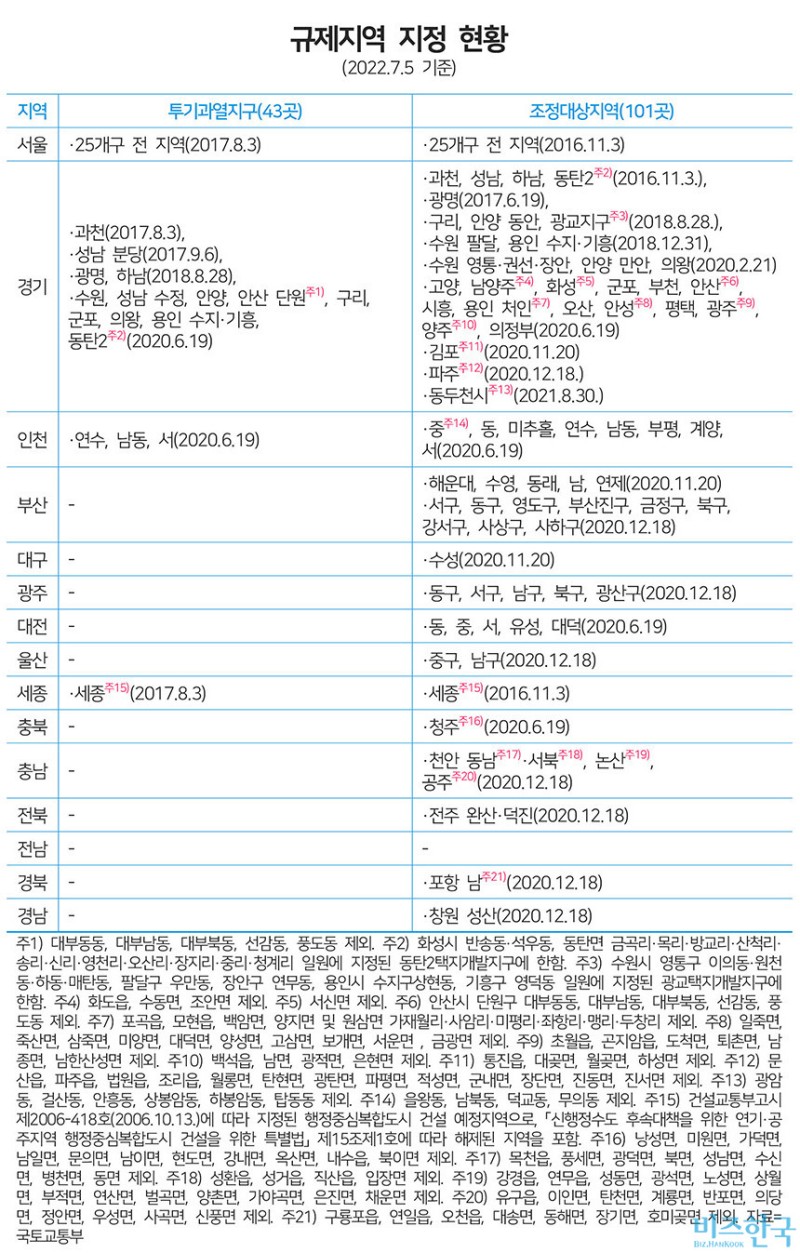 규제지역 지정 현황
(2022.7.5 기준)
지역 투기과열지구(43곳) 조정대상지역(101곳)
서울 ·25개구 전 지역(2017.8.3) ·25개구 전 지역(2016.11.3)
경기
·과천(2017.8.3),
·성남 분당(2017.9.6),
·광명, 하남(2018.8.28),
·수원, 성남 수정, 안양, 안산 단원주1), 구리,
군포, 의왕, 용인 수지·기흥,
동탄2주2)(2020.6.19)
·과천, 성남, 하남, 동탄2주2)(2016.11.3.),
·광명(2017.6.19),
·구리, 안양 동안, 광교지구주3)(2018.8.28.),
·수원 팔달, 용인 수지·기흥(2018.12.31),
·수원 영통·권선·장안, 안양 만안, 의왕(2020.2.21)
·고양, 남양주주4), 화성주5), 군포, 부천, 안산주6),
시흥, 용인 처인주7), 오산, 안성주8), 평택, 광주주9),
양주주10), 의정부(2020.6.19)
·김포주11)(2020.11.20)
·파주주12)(2020.12.18.)
·동두천시주13)(2021.8.30.)
인천 ·연수, 남동, 서(2020.6.19)
·중주14), 동, 미추홀, 연수, 남동, 부평, 계양,
서(2020.6.19)
부산 -
·해운대, 수영, 동래, 남, 연제(2020.11.20)
·서구, 동구, 영도구, 부산진구, 금정구, 북구,
강서구, 사상구, 사하구(2020.12.18)
대구 - ·수성(2020.11.20)
광주 - ·동구, 서구, 남구, 북구, 광산구(2020.12.18)
대전 - ·동, 중, 서, 유성, 대덕(2020.6.19)
울산 - ·중구, 남구(2020.12.18)
세종 ·세종주15)(2017.8.3) ·세종주15)(2016.11.3)
충북 - ·청주주16)(2020.6.19)
충남 -
·천안 동남주17)·서북주18), 논산주19),
공주주20)(2020.12.18)
전북 - ·전주 완산·덕진(2020.12.18)
전남 - -
경북 - ·포항 남주21)(2020.12.18)
경남 - ·창원 성산(2020.12.18)
주1) 대부동동, 대부남동, 대부북동, 선감동, 풍도동 제외. 주2) 화성시 반송동·석우동, 동탄면 금곡리·목리·방교리·산척리·
송리·신리·영천리·오산리·장지리·중리·청계리 일원에 지정된 동탄2택지개발지구에 한함. 주3) 수원시 영통구 이의동·원천
동·하동·매탄동, 팔달구 우만동, 장안구 연무동, 용인시 수지구상현동, 기흥구 영덕동 일원에 지정된 광교택지개발지구에
한함. 주4) 화도읍, 수동면, 조안면 제외. 주5) 서신면 제외. 주6) 안산시 단원구 대부동동, 대부남동, 대부북동, 선감동, 풍
도동 제외. 주7) 포곡읍, 모현읍, 백암면, 양지면 및 원삼면 가재월리·사암리·미평리·좌항리·맹리·두창리 제외. 주8) 일죽면,
죽산면, 삼죽면, 미양면, 대덕면, 양성면, 고삼면, 보개면, 서운면 , 금광면 제외. 주9) 초월읍, 곤지암읍, 도척면, 퇴촌면, 남
종면, 남한산성면 제외. 주10) 백석읍, 남면, 광적면, 은현면 제외. 주11) 통진읍, 대곶면, 월곶면, 하성면 제외. 주12) 문
산읍, 파주읍, 법원읍, 조리읍, 월롱면, 탄현면, 광탄면, 파평면, 적성면, 군내면, 장단면, 진동면, 진서면 제외. 주13) 광암
동, 걸산동, 안흥동, 상봉암동, 하봉암동, 탑동동 제외. 주14) 을왕동, 남북동, 덕교동, 무의동 제외. 주15) 건설교통부고시
제2006-418호(2006.10.13.)에 따라 지정된 행정중심복합도시 건설 예정지역으로, 「신행정수도 후속대책을 위한 연기·공
주지역 행정중심복합도시 건설을 위한 특별법」 제15조제1호에 따라 해제된 지역을 포함. 주16) 낭성면, 미원면, 가덕면,
남일면, 문의면, 남이면, 현도면, 강내면, 옥산면, 내수읍, 북이면 제외. 주17) 목천읍, 풍세면, 광덕면, 북면, 성남면, 수신
면, 병천면, 동면 제외. 주18) 성환읍, 성거읍, 직산읍, 입장면 제외. 주19) 강경읍, 연무읍, 성동면, 광석면, 노성면, 상월
면, 부적면, 연산면, 벌곡면, 양촌면, 가야곡면, 은진면, 채운면 제외. 주20) 유구읍, 이인면, 탄천면, 계룡면, 반포면, 의당
면, 정안면, 우성면, 사곡면, 신풍면 제외. 주21) 구룡포읍, 연일읍, 오천읍, 대송면, 동해면, 장기면, 호미곶면 제외. 자료=
국토교통부
비즈한국
BIZ.HANKOOK